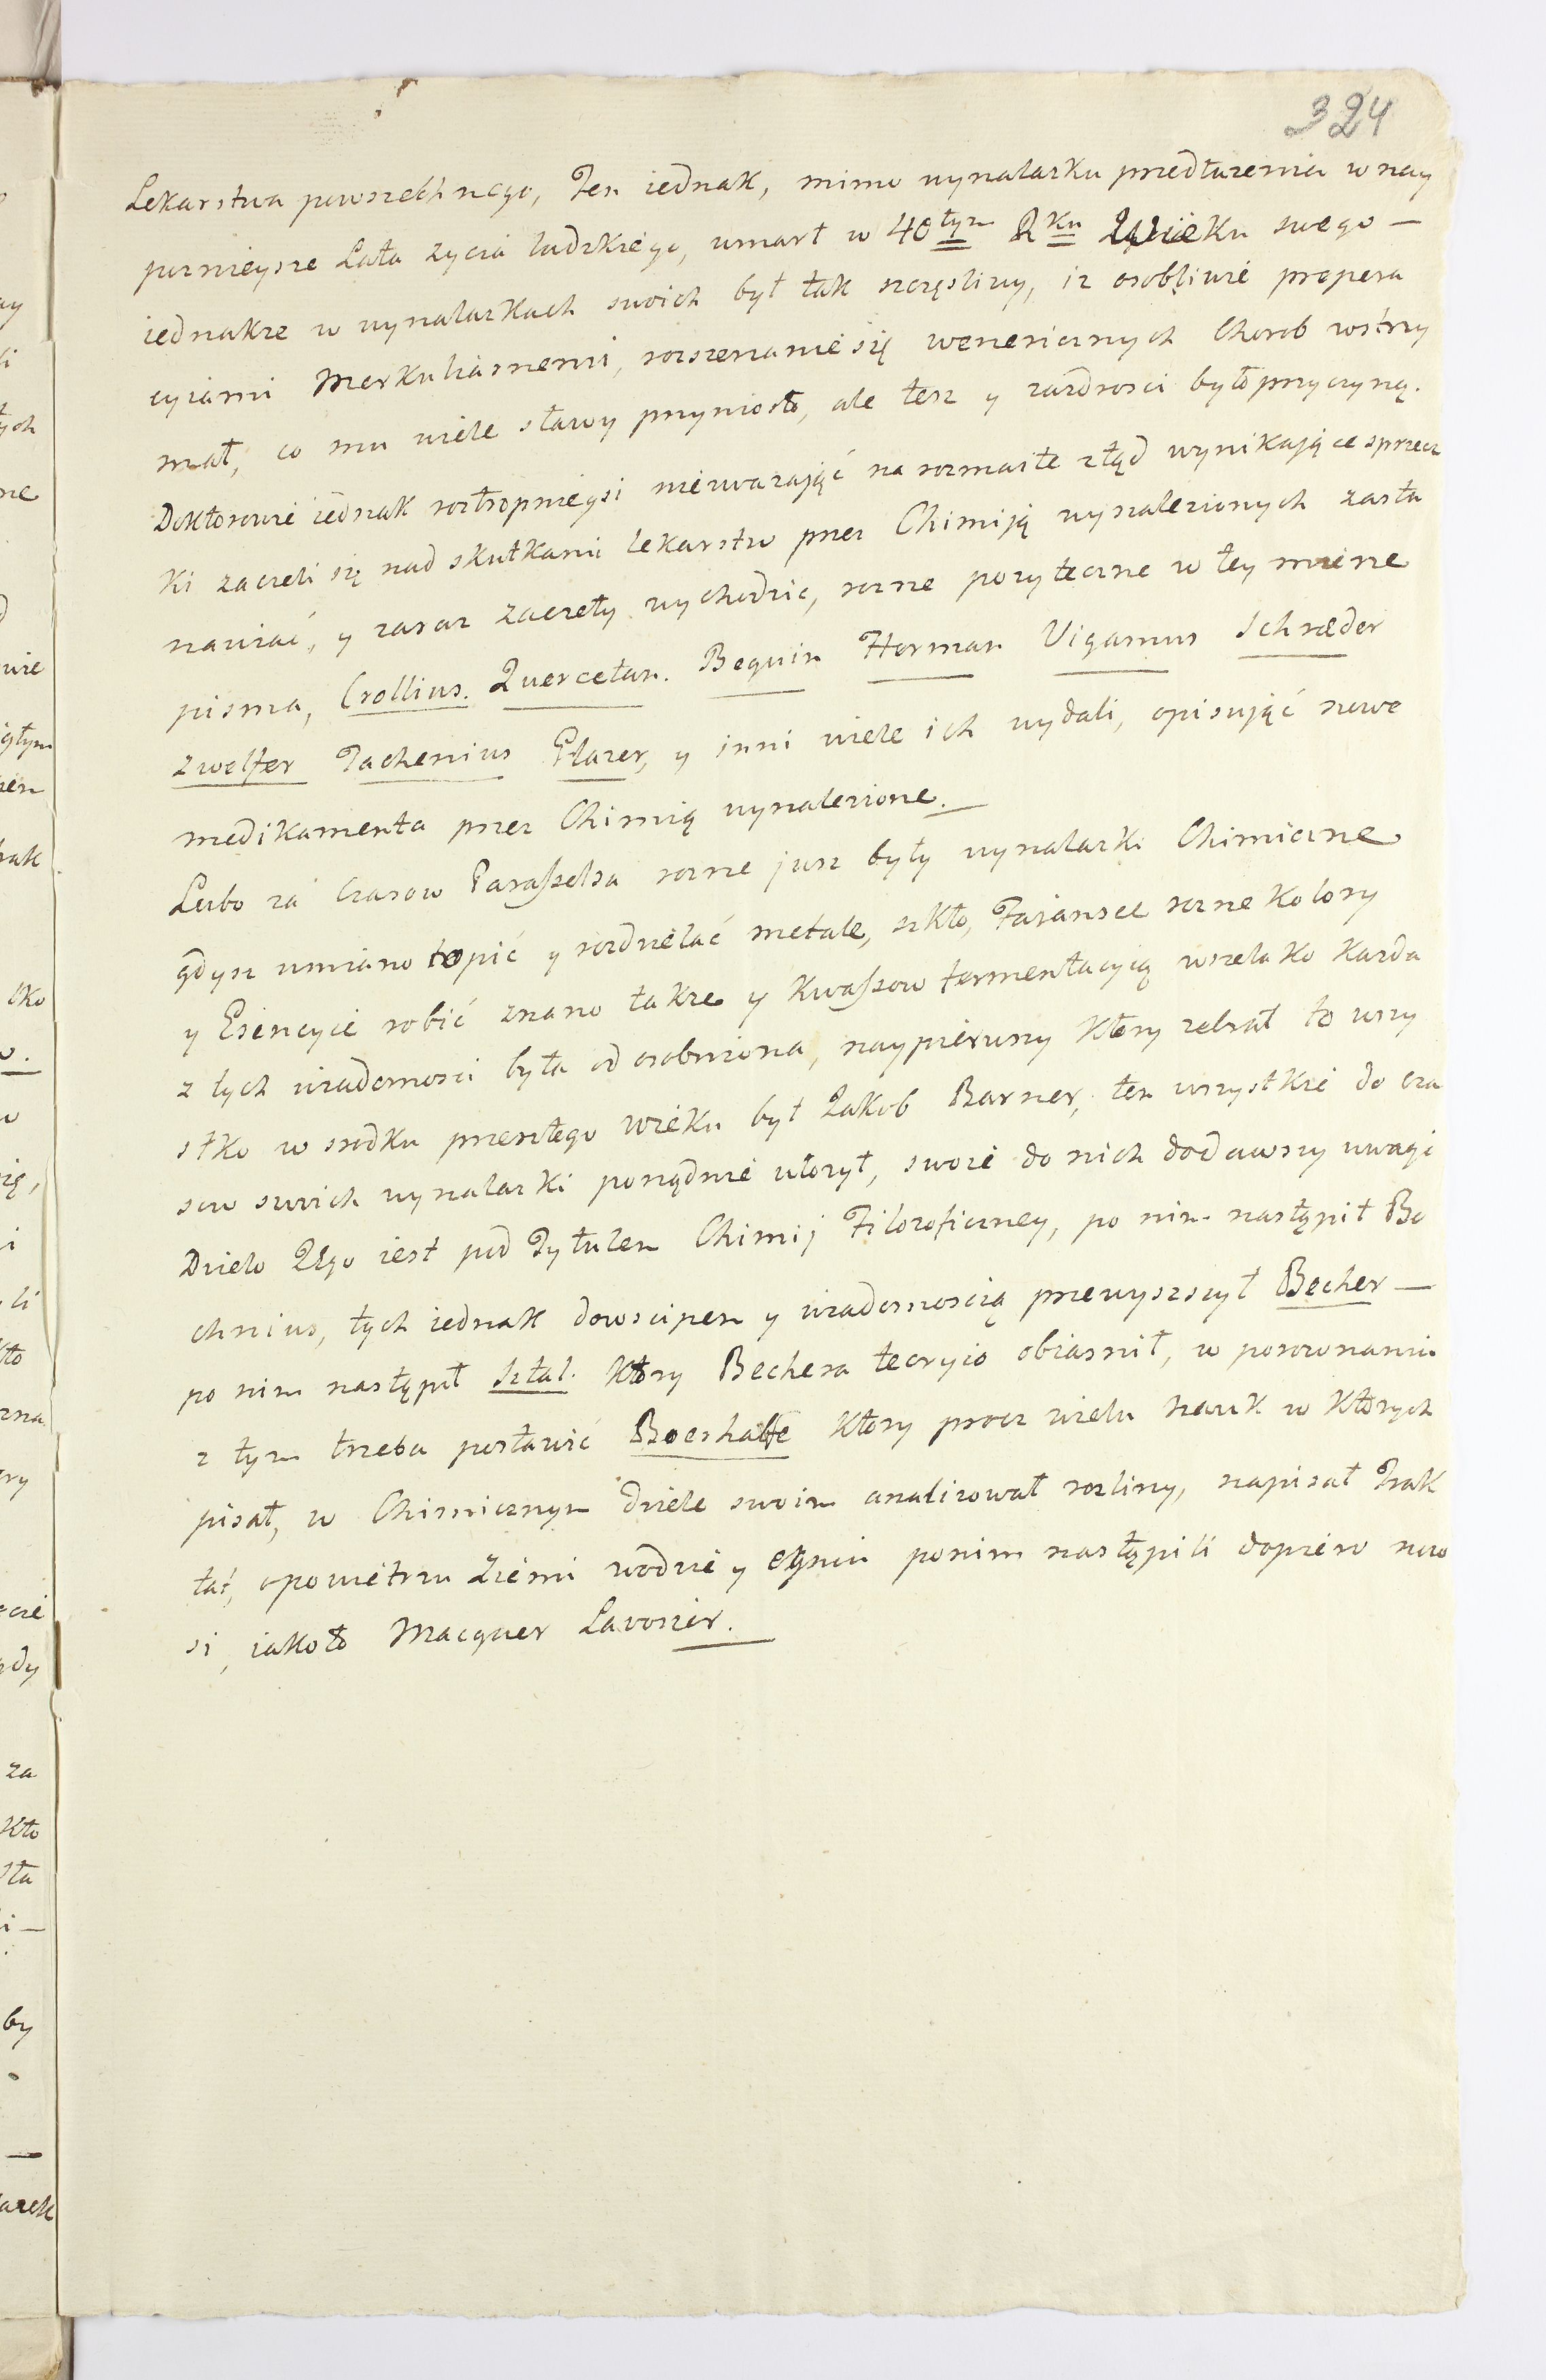 324
Lekarstwa powszechnego, Ten iednak, mimo wynalazku przedłuzenia w nay
poznieysze Lata zycia ludzkiego, umarł w 40tym Rku Wieku swego —
iednakze w wynalazkach swoich był tak szczęsliwy, iz osobliwie prepera
cyiami Merkuliasnemi, rozszerzanie się wenericznych Chorob wstrzy
mał, co mu wiele sławy przyniosło, ale tesz y zazdrosci było przyczyną.
Doktorowie iednak roztropnieysi nieuwazaiąć na rozmaite ztąd wynikaiące sprzecz
ki zaczeli się nad skutkami lekarstw przez Chimiją wynalezionych zasta
nawiać, y zaraz zaczeły wychodzic, rozne pozyteczne w tey mierze
pisma, Crollius. Quercetan. Beguin Herman Vigamus Schræder
Zwelfer Tachenius Glazer, y inni wiele ich wydali, opisująć nowe
medikamenta przez Chimią wynalezione. —
Lubo za Czasow Paraßelsa rozne jusz były wynalazki Chimiczne
gdysz umiano topić y rozdzielać metale, szkło, Fajansee rozne kolory
y Esencyie robić znano takze y kwaßzow fermentacyią wszelako kazda
z tych wiadomosci była odosobniona, naypierwszy ktory zebrał to wszy
stko w srodku przeszłego wieku był Jakob Barner, ten wszystkie do cza
sow swoich wynalazki porządnie ułozył, swoie do nich dodawszy uwagi
Dzieło Jego iest pod Tytulem Chimij Filozoficzney, po nim nastąpił Bo
chnius, tych iednak dowscipem y wiadomoscią przewyszszył Becher —
po nim nastąpił Sztal. ktory Bechera teoryio obiasnił, w porownaniu
z tym trzeba postawić Boerhawe ktory procz wielu nauk w ktorych
pisał, w Chimicznym dziele swoim analizował rozliny, napisał Trak
tat, opowietrzu Ziemi wodzie y ogniu ponim nastąpili dopiero now
si, iakoto Macquer Lavoszier.